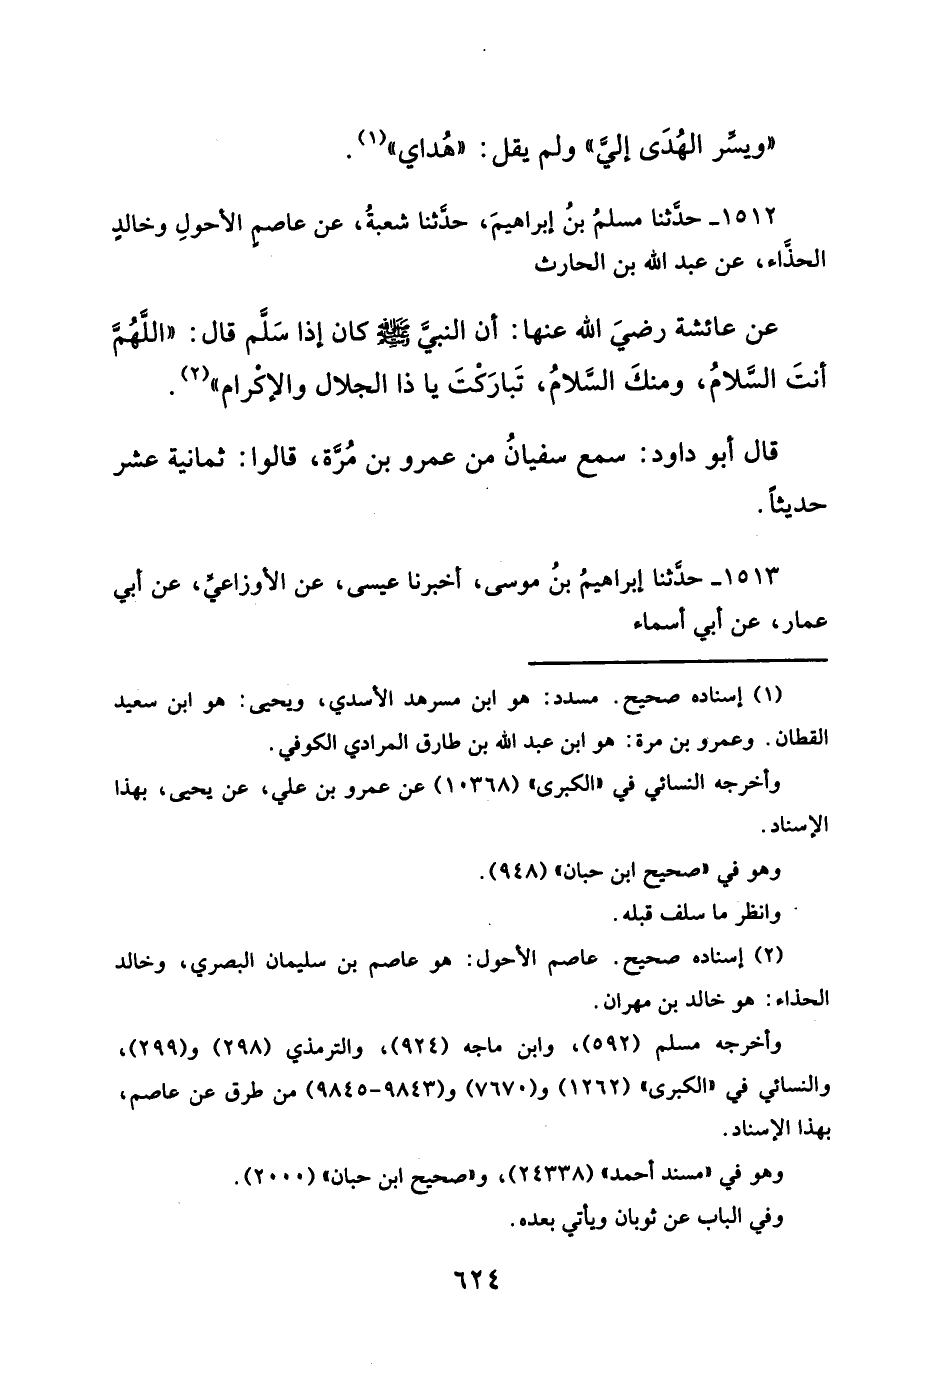 «ويسِّر الهُدَى إليَّ» ولم يقل: «هُداي»(١).
١٥١٢ـ حدَّثنا مسلمُ بنُ إبراهيمَ، حدَّثنا شعبةُ، عن عاصمٍ الأحولِ وخالدٍ
الحذَّاء، عن عبد الله بن الحارث
عن عائشة رضيَ الله عنها: أن النبيَّ ﷺ كان إذا سَلَّم قال: «اللَّهُمَّ
أنتَ السَّلامُ، ومنكَ السَّلامُ، تَبارَكْتَ يا ذا الجلال والإكْرام»(٢).
قال أبو داود: سمع سفيانُ من عمرو بن مُرَّة، قالوا: ثمانية عشر
حديثاً.
١٥١٣ـ حدَّثنا إبراهيمُ بنُ موسى، أخبرنا عيسى، عن الأوزاعيِّ، عن أبي
عمار، عن أبي أسماء
(١) إسناده صحيح. مسدد: هو ابن مسرهد الأسدي، ويحيى: هو ابن سعيد
القطان. وعمرو بن مرة: هو ابن عبد الله بن طارق المرادي الكوفي.
وأخرجه النسائي في «الكبرى» (١٠٣٦٨) عن عمرو بن علي، عن يحيى، بهذا
الإسناد.
وهو في «صحيح ابن حبان» (٩٤٨).
وانظر ما سلف قبله.
(٢) إسناده صحيح. عاصم الأحول: هو عاصم بن سليمان البصري، وخالد
الحذاء: هو خالد بن مهران.
وأخرجه مسلم (٥٩٢)، وابن ماجه (٩٢٤)، والترمذي (٢٩٨) و(٢٩٩)،
والنسائي في «الكبرى» (١٢٦٢) و(٧٦٧٠) و(٩٨٤٣-٩٨٤٥) من طرق عن عاصم،
بهذا الإسناد.
وهو في «مسند أحمد» (٢٤٣٣٨)، و«صحيح ابن حبان» (٢٠٠٠).
وفي الباب عن ثوبان ويأتي بعده.
٦٢٤